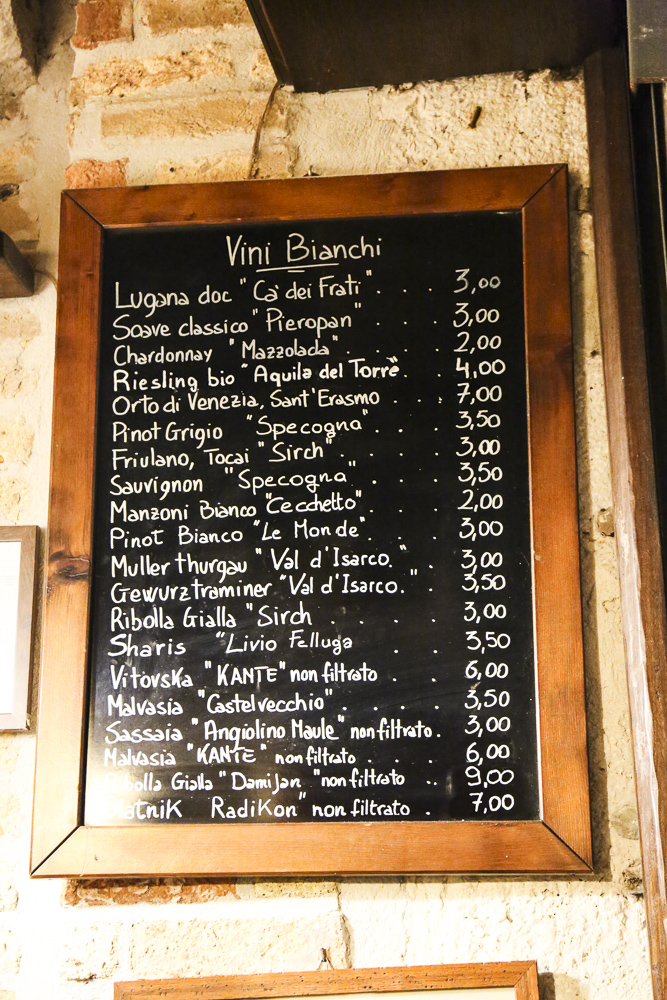 Vini Bianchi
Lugana doc "Ca' dei Frati" . . . 3,00
Soave classico "Pieropan" . . . 3,00
Chardonnay "Mazzolada" . . . . 2,00
Riesling bio "Aquila del Torre" . . 4,00
Orto di Venezia, Sant'Erasmo . . . 7,00
Pinot Grigio "Specogna" . . . 3,50
Friulano, Tocai "Sirch" . . . . 3,00
Sauvignon "Specogna" . . . 3,50
Manzoni Bianco "Cecchetto" . . . 2,00
Pinot Bianco "Le Monde" . . . 3,00
Muller thurgau "Val d'Isarco." . . 3,00
Gewurztraminer "Val d'Isarco." . 3,50
Ribolla Gialla "Sirch . . . . 3,00
Sharis "Livio Felluga . . 3,50
Vitovska "KANTE" non filtrato . . 6,00
Malvasia "Castelvecchio" . . . . 3,50
Sassaia "Angiolino Maule" non filtrato . 3,00
Malvasia "KANTE" non filtrato . . . 6,00
Gialla "Damijan "non filtrato . . 9,00
RadiKon" non filtrato . 7,00